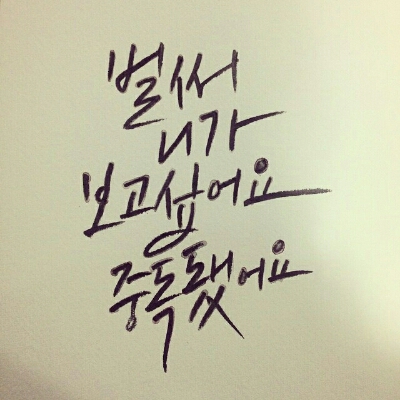 벌써
니가
보고삽어요
중독됐어요